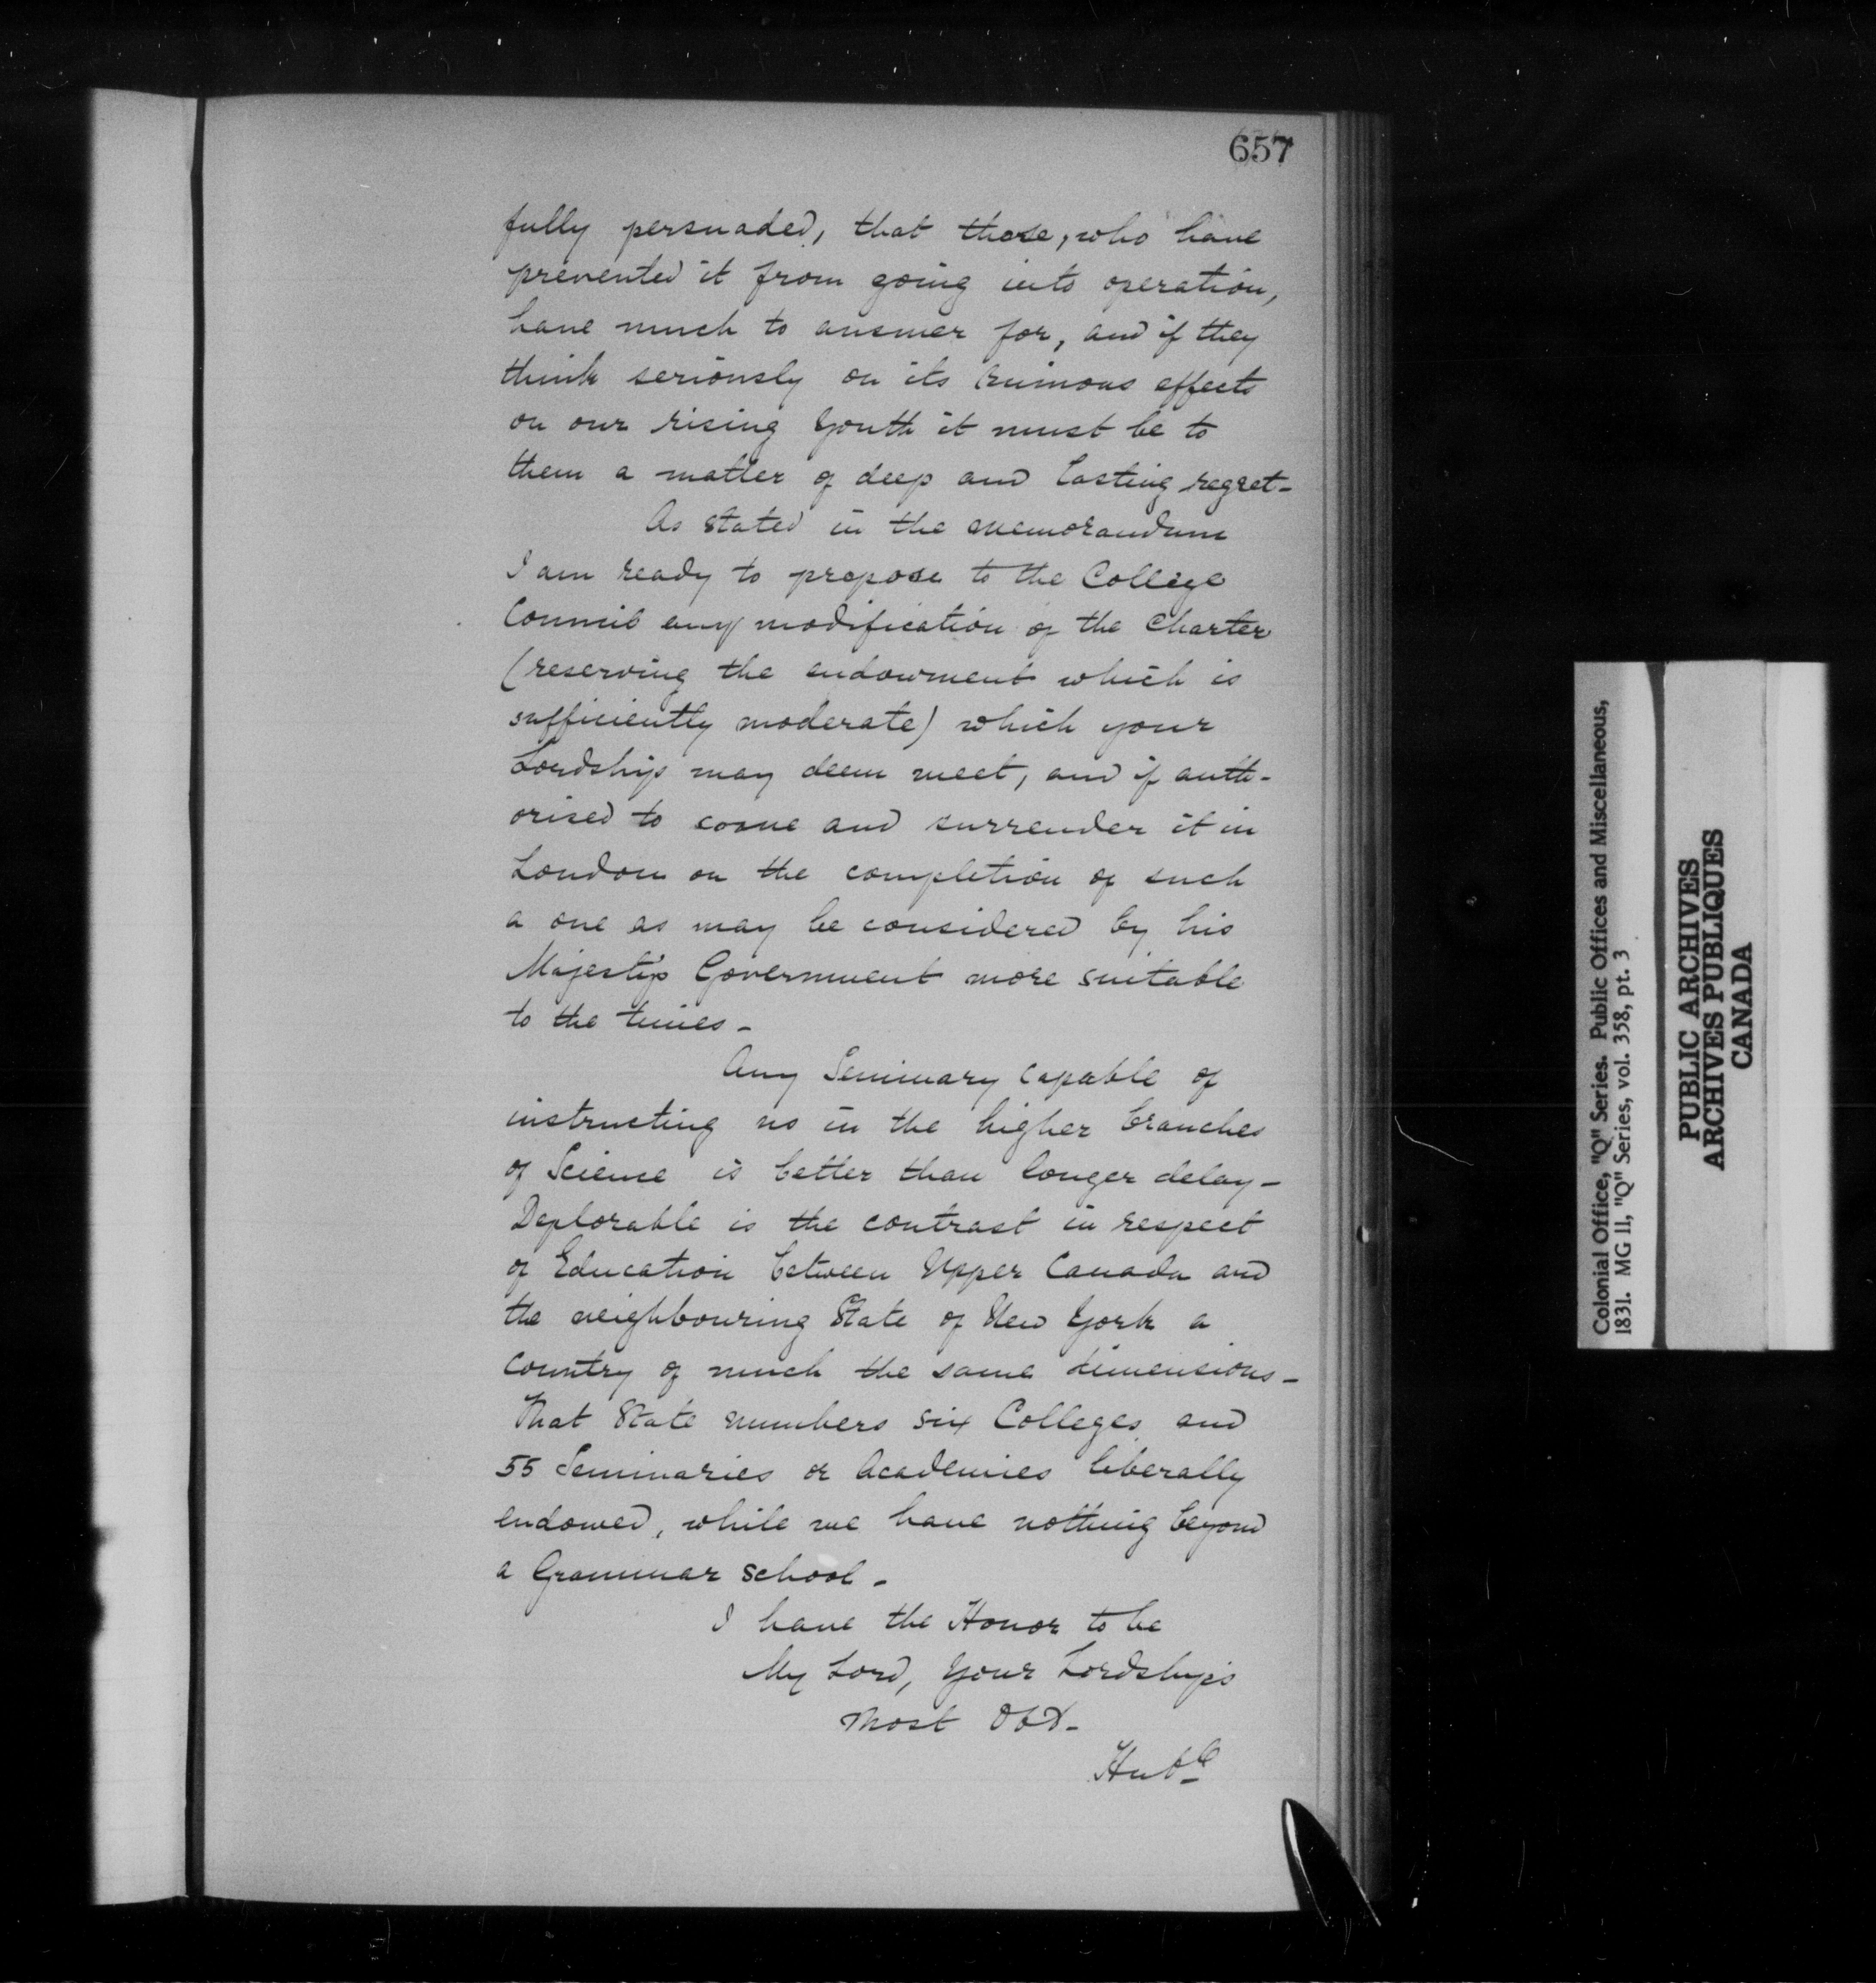 657
fully persuaded, that those, who have
prevented it from going into operation,
have much to answer for, and if they
think seriously on its ruinous effects
on our rising Youth it must be to
them a matter of deep and lasting regret-
As stated in the memorandum
I am ready to propose to the College
Council any modification of the Charter
(reserving the endowment which is
sufficiently moderate) which your
Lordship may deem meet, and if auth-
orised to come and surrender it in
London on the completion of such
a one as may be considered by his
Majesty's Government more suitable
to the times-
Any Seminary capable of
instructing us in the higher branches
of Science is better than longer delay-
Deplorable is the contrast in respect
of Education between Upper Canada and
the neighbouring State of New York a
Country of much the same dimensions-
That State numbers six Colleges and
55 Seminaries or Academies liberally
endowed, while we have nothing beyond
a Grammar School-
I have the Honor to be
My Lord, Your Lordship's
Most Obt-
Huble
Colonial Office, "Q" Series. Public Offices and Miscellaneous,
1831. MG 11, "Q" Series, vol. 358, pt. 3
PUBLIC ARCHIVES
ARCHIVES PUBLIQUES
CANADA